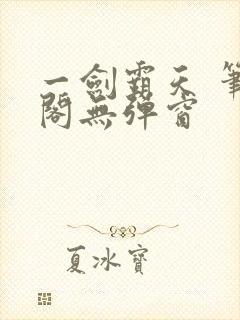 一劍霸天 筆
閣無彈窗
夏冰寶